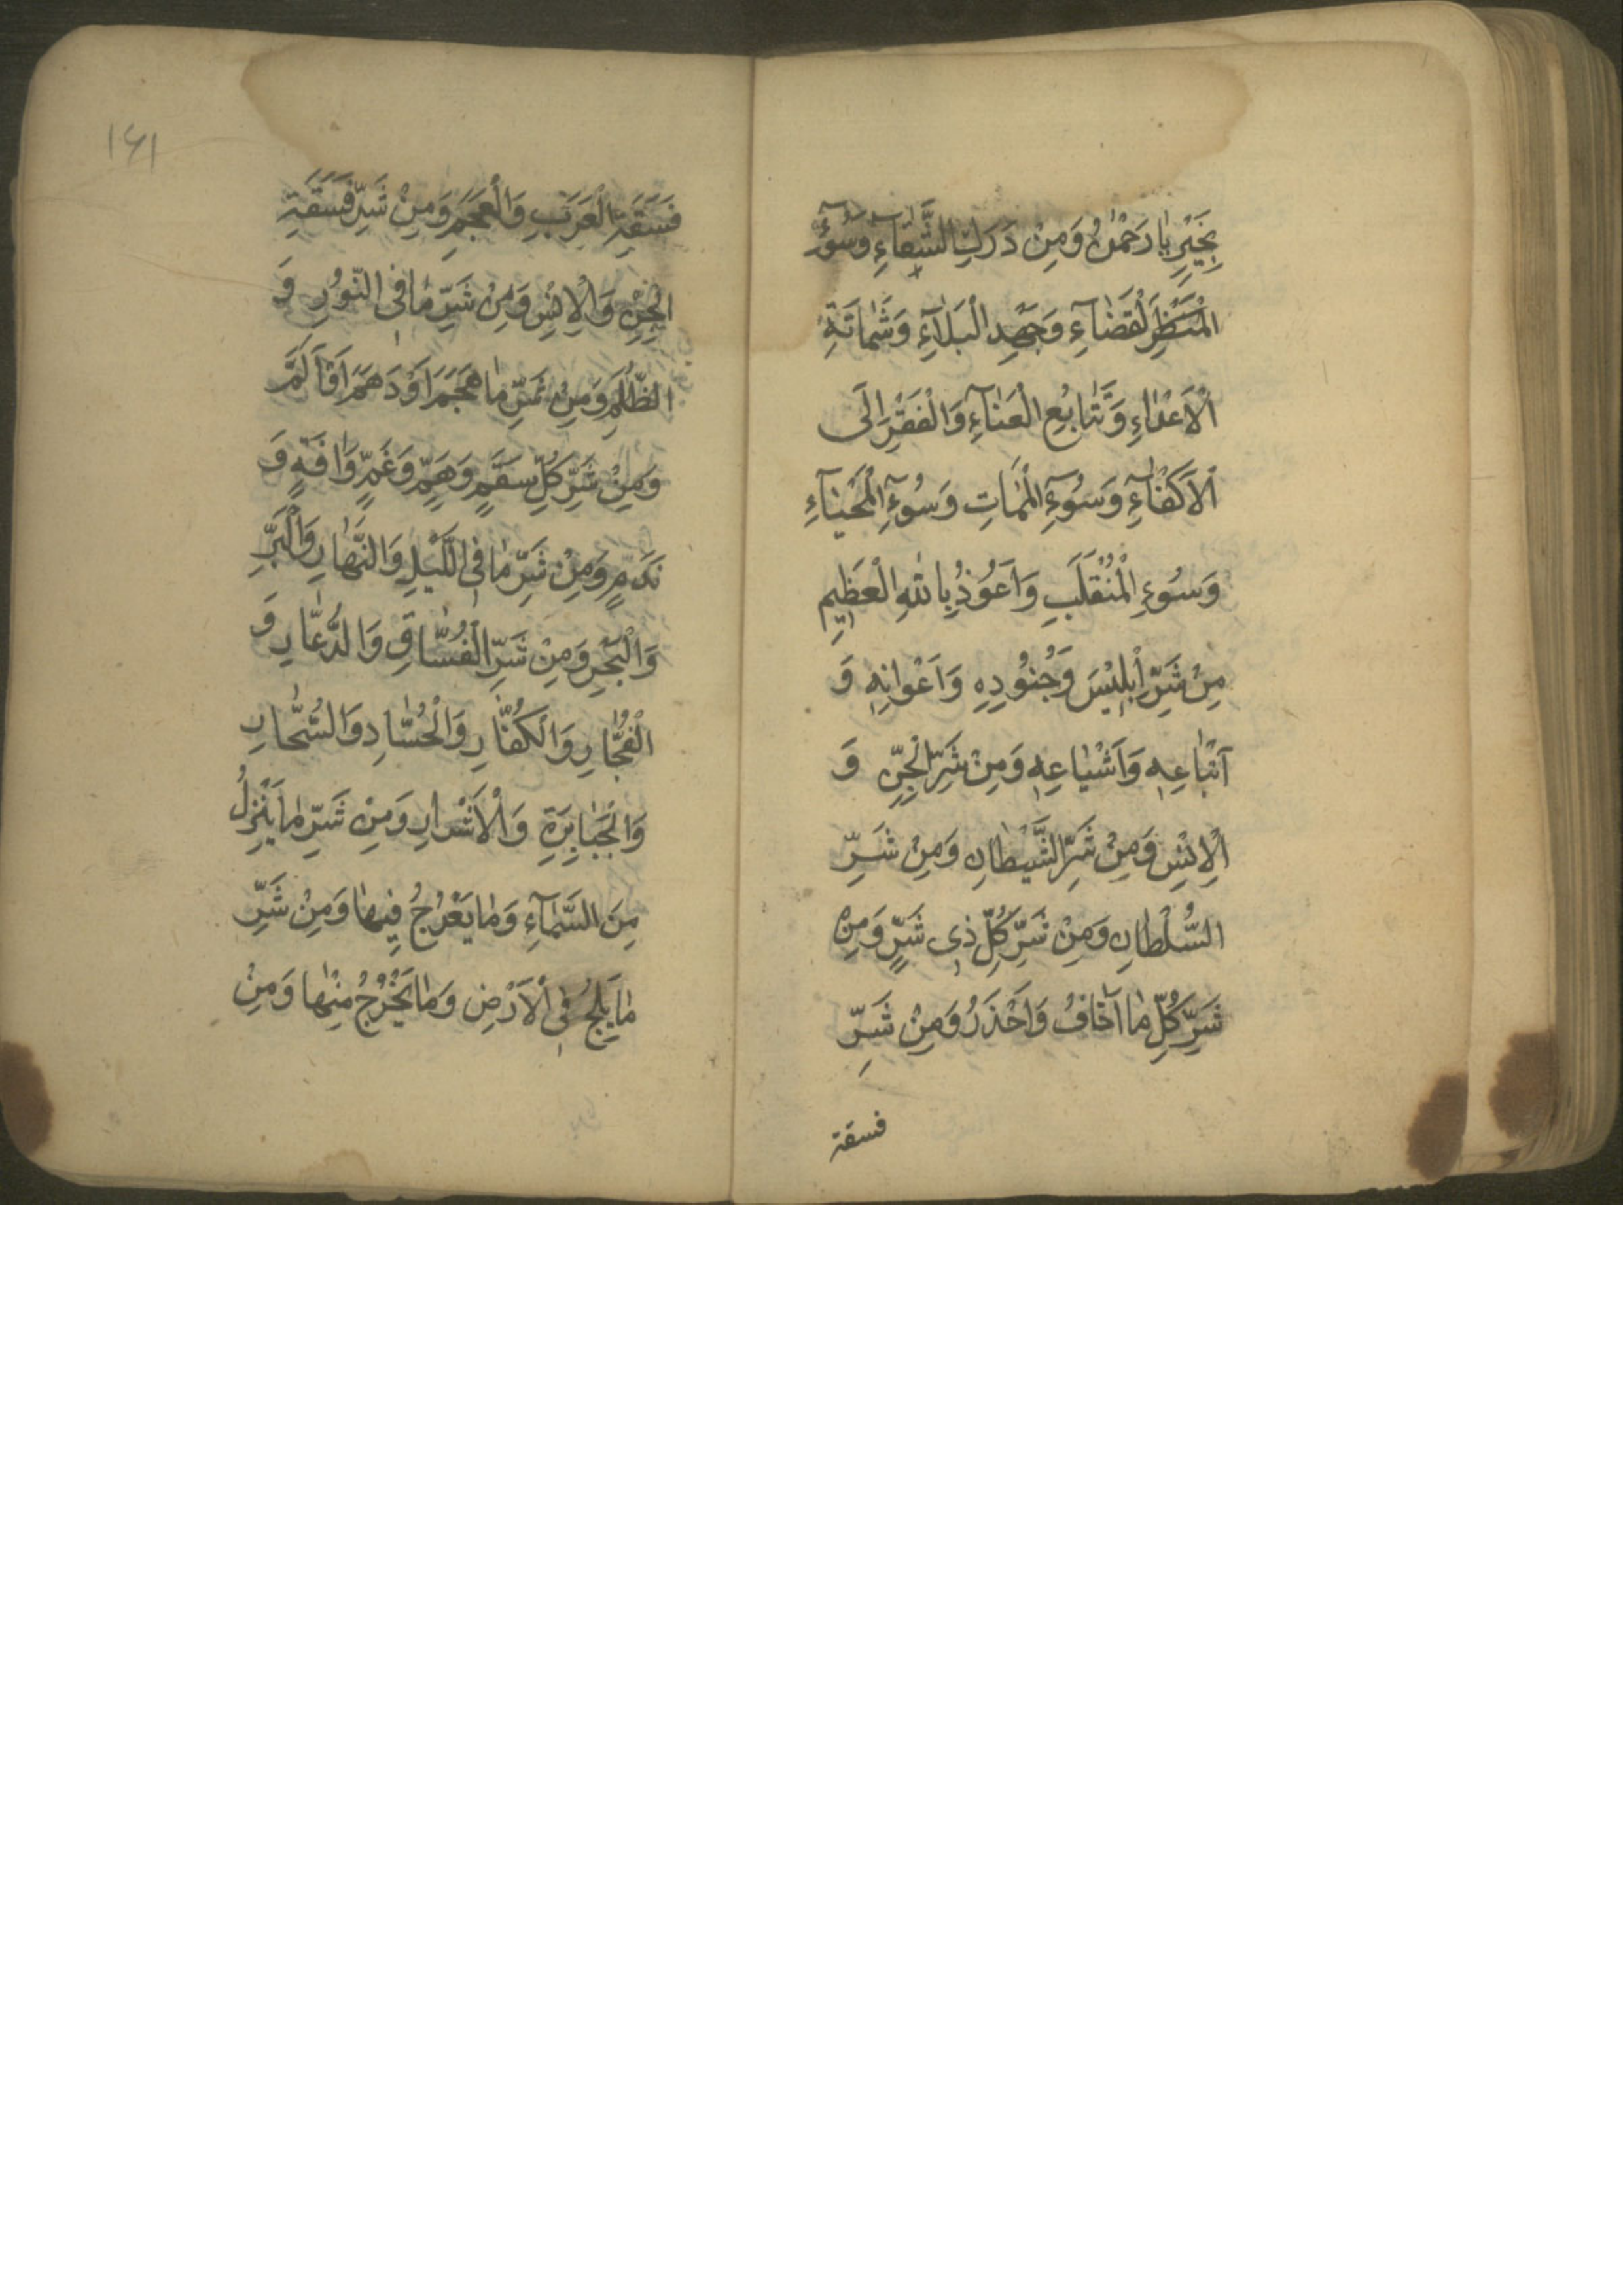 بِخَيْرٍ يَا رَحْمٰنُ وَمِنْ دَرَكِ الشَّقَآءِ وَسُوٓءِ
الْمَنْظَرِ الْقَضَآءِ وَجَهْدِ الْبَلَآءِ وَشَمَاتَةِ
الْاَعْدَاءِ وَتَتَابُعِ الْعَنَآءِ وَالْفَقْرِ اِلَى
الْاَكْفَآءِ وَسُوٓءِ الْمَمَاتِ وَسُوٓءِ الْمَحْيَآءِ
وَسُوءِ الْمُنْقَلَبِ وَاَعُوْذُ بِاللّٰهِ الْعَظِيْمِ
مِنْ شَرِّ اِبْلِيْسَ وَجُنُوْدِهِ وَاَعْوَانِهٖ وَ
اَتْبَاعِهٖ وَاَشْيَاعِهٖ وَمِنْ شَرِّ الْجِنِّ وَ
الْاِنْسِ وَمِنْ شَرِّ الشَّيْطَانِ وَمِنْ شَرِّ
السُّلْطَانِ وَمِنْ شَرِّ كُلِّ ذِى شَرٍّ وَمِنْ
شَرِّ كُلِّ مَا اَخَافُ وَاَحْذَرُ وَمِنْ شَرِّ
فسقة
١٤١
فَسَقَةِ الْعَرَبِ وَالْعَجَمِ وَمِنْ شَرِّ فَسَقَةِ
الْجِنِّ وَالْاِنْسِ وَمِنْ شَرِّ مَا فِى النُّوْرِ وَ
الظُّلَمِ وَمِنْ شَرِّ مَا هَجَمَ اَوْ دَهَمَ اَوْ اَلَمَّ
وَمِنْ شَرِّ كُلِّ سَقَمٍ وَهَمٍّ وَغَمٍّ وَاٰفَةٍ وَ
نَدَمٍ وَمِنْ شَرِّ مَا فِى اللَّيْلِ وَالنَّهَارِ وَالْبَرِّ
وَالْبَحْرِ وَمِنْ شَرِّ الْفُسَّاقِ وَالدُّعَّارِ وَ
الْفُجَّارِ وَالْكُفَّارِ وَالْحُسَّادِ وَالسُّحَّارِ
وَالْجَبَابِرَةِ وَالْاَشْرَارِ وَمِنْ شَرِّ مَا يَنْزِلُ
مِنَ السَّمَآءِ وَمَا يَعْرُجُ فِيهَا وَمِنْ شَرِّ
مَا يَلِجُ فِى الْاَرْضِ وَمَا يَخْرُجُ مِنْهَا وَمِنْ